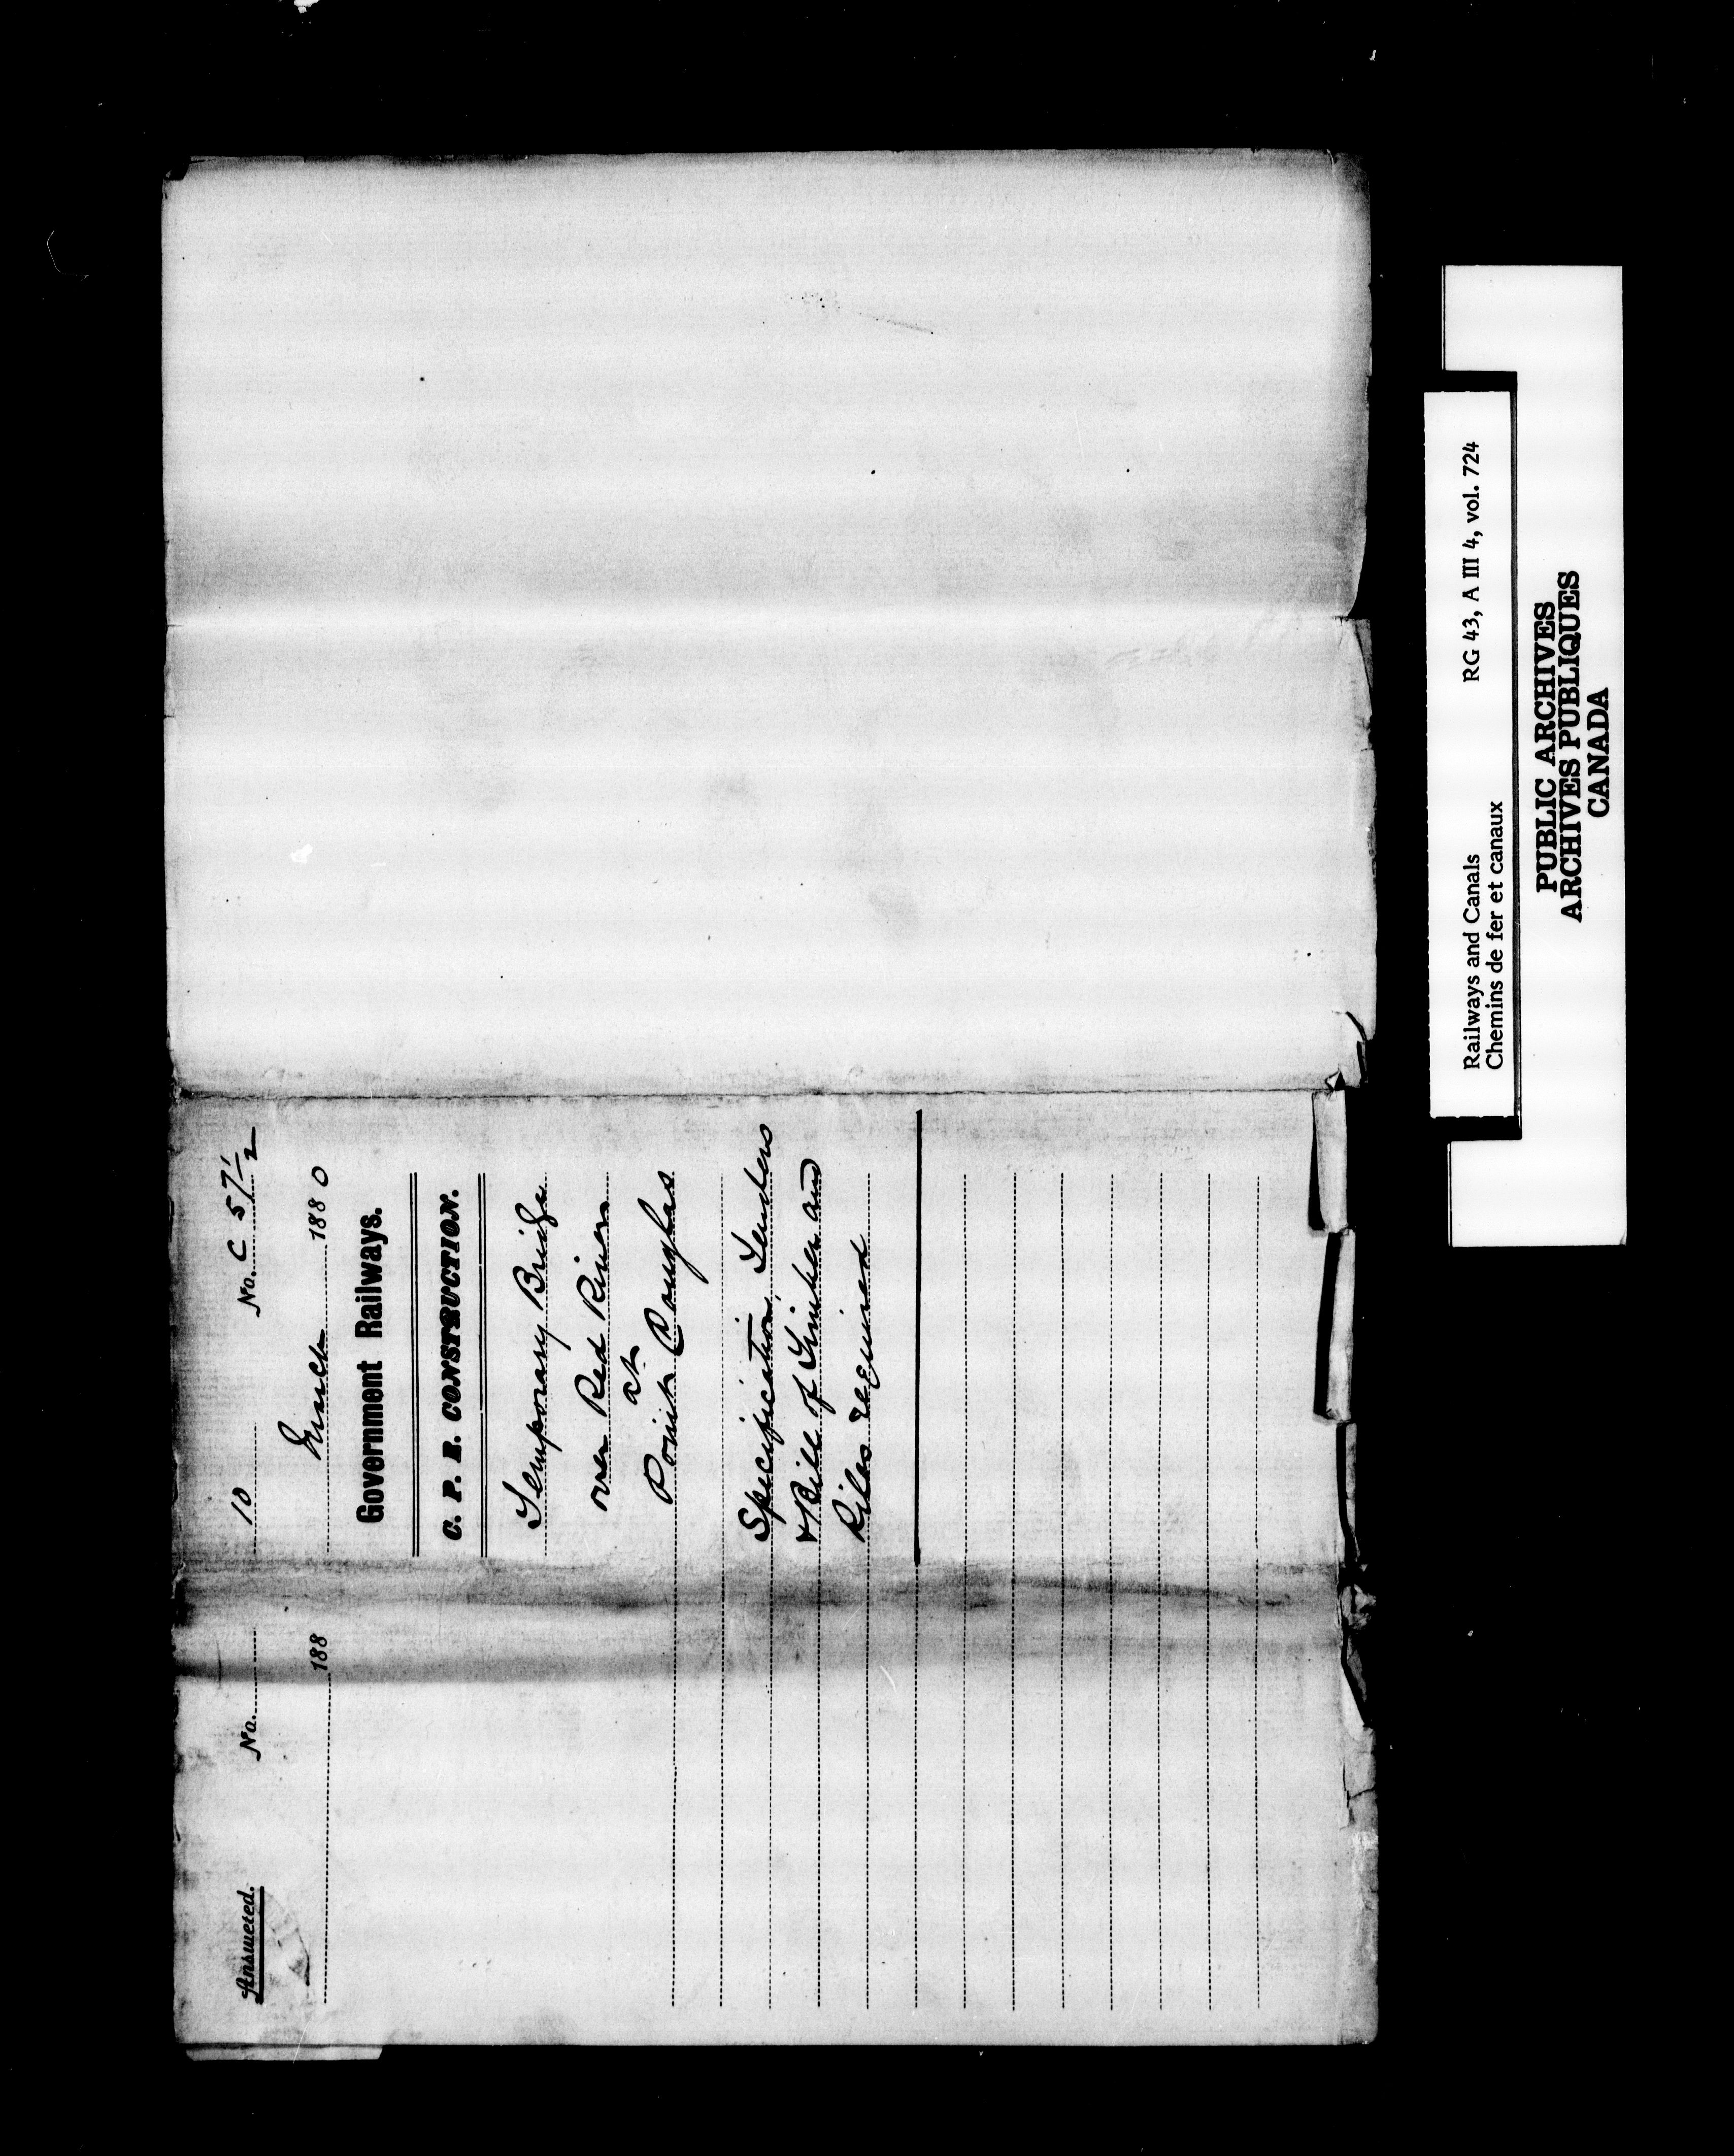 Answered.
No.
188
10
No. C 57 1/2
188 0
Government Railways.
C. P. R. CONSTRUCTION.
Temporary Bridge
over Red River
at
Point Douglas
Specification, Tenders
& Bill of Timber and
Piles required
Railways and Canals RG 43, A III 4, vol. 724
Chemins de fer et canaux
PUBLIC ARCHIVES
ARCHIVES PUBLIQUES
CANADA